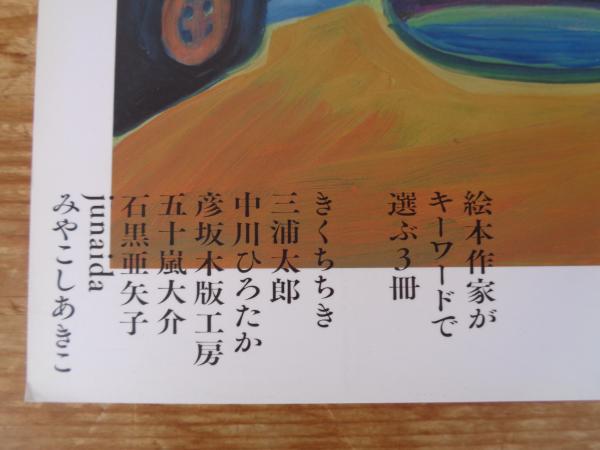 絵本作家が
キーワードで
選ぶ3冊
きくちちき
三浦太郎
中川ひろたか
彦坂木版工房
五十嵐大介
石黒亜矢子
junaida
みやこしあきこ